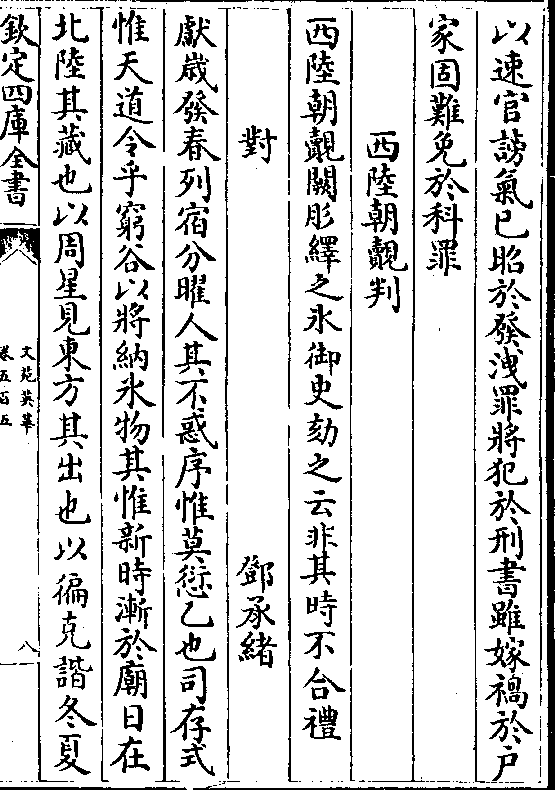 以速官謗氣已昭於發洩罪將犯於刑書雖嫁禍於戶
家固難免於科罪
西陸朝覿判
西陸朝覿闕彤繹之氷御史劾之云非其時不合禮
對
鄧承緒
獻歲發春列宿分曜人其不惑序惟莫愆乙也司存式
惟天道令乎窮谷以將納氷物其惟新時漸於廟日在
北陸其藏也以周星見東方其出也以徧克諧冬夏
欽定四庫全書
文苑英華
卷五百五
八